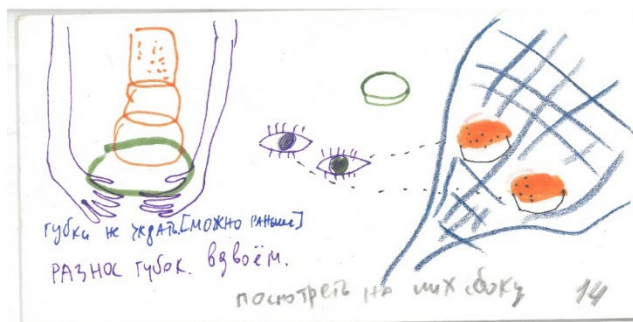 губки не ждать [можно раньше]
РАЗНОС ГУБОК. ВДВОЁМ.
посмотреть на них сбоку
14